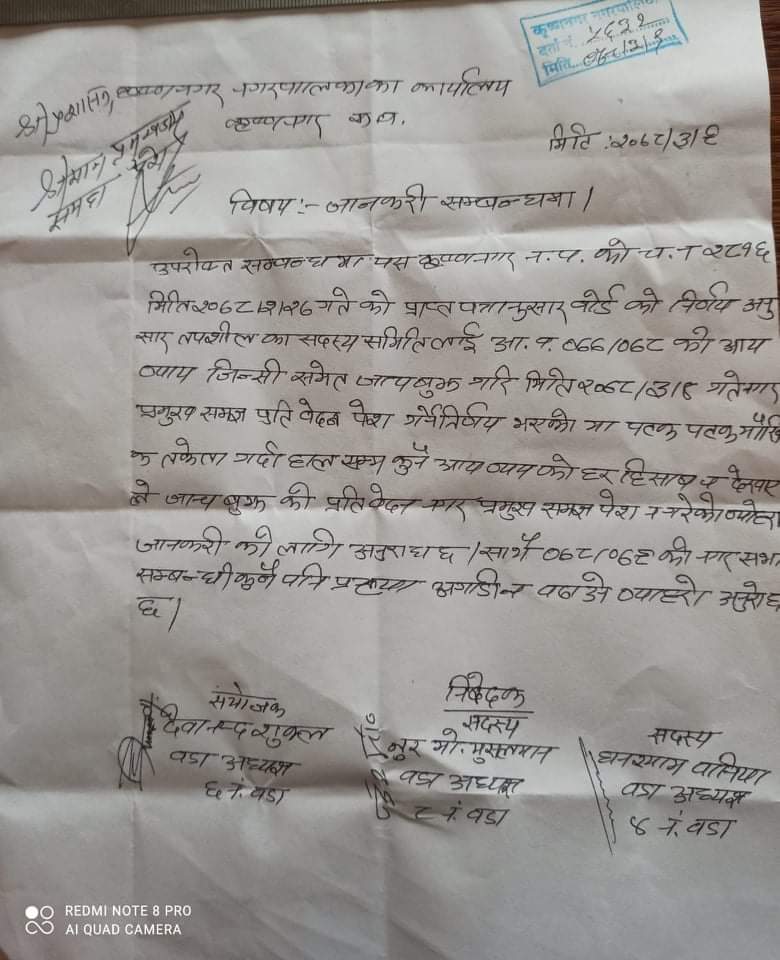 कृष्णनगर नगरपालिका
दर्ता नं.
मिति
कृष्णनगर नगरपालिकाका कार्यालय
कृष्णनगर क.व.
मिति :२०७८/३/६
विषय:- जानकरी सम्बन्धमा।
उपरोक्त सम्बन्धमा यस कृष्णनगर न.पा. को च.न २८१६
मिति २०७८।२।२६ गते को प्राप्त पत्रानुसार बोर्ड को निर्णय अनु
सार तपशील का सदस्य समितिलाई आ.व. ०७७/०७८ को आय
व्याय जिन्सी समेत जाचबुझ गरि मिति २०७८/३/४ गते नगर
प्रमुख समक्ष प्रतिवेदन पेश गर्ने निर्णय भएको मा पटक पटक मौखि
क तकेता गर्दा हाल सम्म कुनै आय व्यय को हर हिसाब न देखाए
ले जान्च बुझ की प्रतिवेदन नगर प्रमुख समक्ष पेश न गरेको व्योहोरा
जानकरी को लागि अनुरोध छ। साथै ०७८/०७९ को नगर सभा
सम्बन्धी कुनै पनि प्रक्रया अगाडी न वढाउने व्याहोरो अनुरोध
छ।
निवेदक
संयोजक
देवानन्द शुक्ल
वडा अध्यक्ष
६ नं. वडा
सदस्य
नुर मो. मुसलमान
वडा अध्यक्ष
८ नं. वडा
सदस्य
घनश्याम वानिया
वडा अध्यक्ष
४ नं. वडा
REDMI NOTE 8 PRO
AI QUAD CAMERA